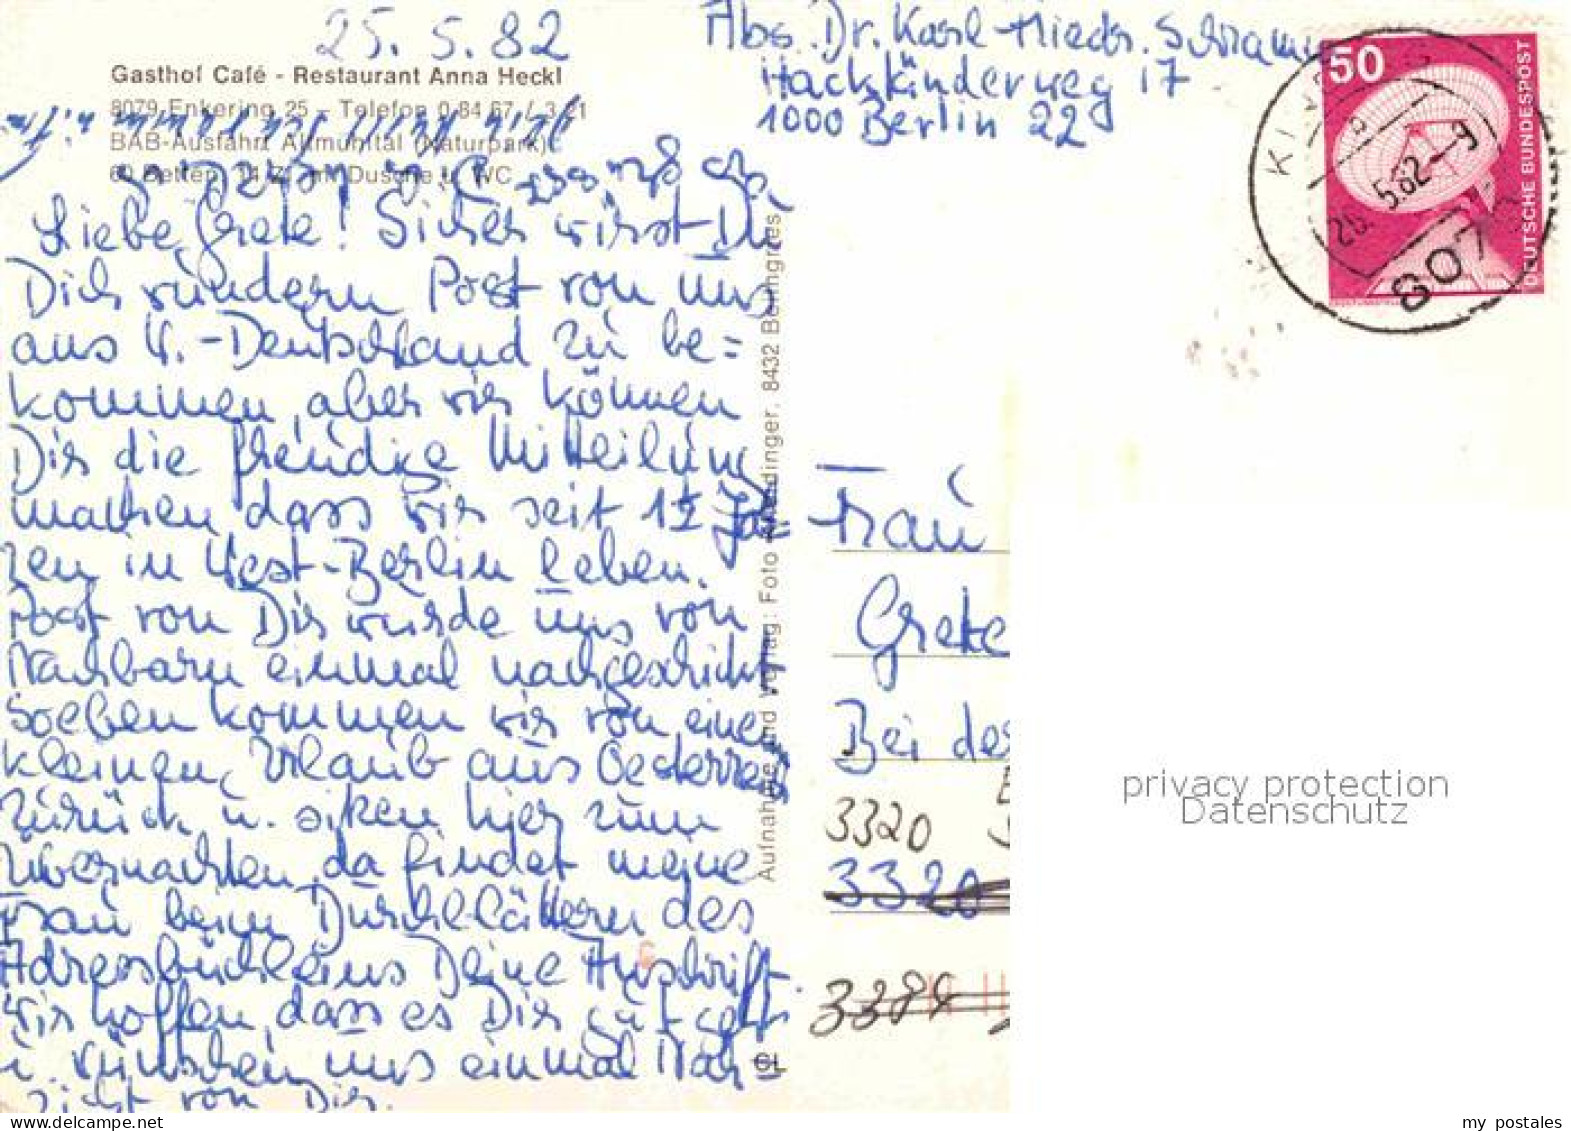 25. 5. 82
Abs. Dr. Karl-Friedr. Schramm
Hackländerweg 17
1000 Berlin 22
Gasthof Café - Restaurant Anna Heckl
8079 Enkering 25 – Telefon 0 84 67 / 3 21
BAB-Ausfahrt Altmühltal (Naturpark)
60 Betten, Dusche u. WC
Liebe Grete! Sicher wirst Du
Dich wundern Post von uns
aus W.-Deutschland zu be=
kommen, aber wir können
Dir die freudige Mitteilung
machen, dass wir seit 1½ Jah=
ren in West-Berlin leben.
Post von Dir wurde uns von
Nachbarn einmal nachgeschickt
Soeben kommen wir von einem
kleinen Urlaub aus Oesterreich
zurück u. sitzen hier zum
Übernachten, da findet meine
Frau beim Durchblättern des
Adressbüchleins Deine Anschrift.
Wir hoffen, dass es Dir gut geht
u. wünschen uns einmal Nach=
richt von Dir.
Aufnahme und Verlag: Foto 8432 Beilngries
CL
50
DEUTSCHE BUNDESPOST
26. 5.82 – 9
807
Frau
Grete
Bei der
3320
3320
3384
privacy protection
Datenschutz
www.delcampe.net
my_postales